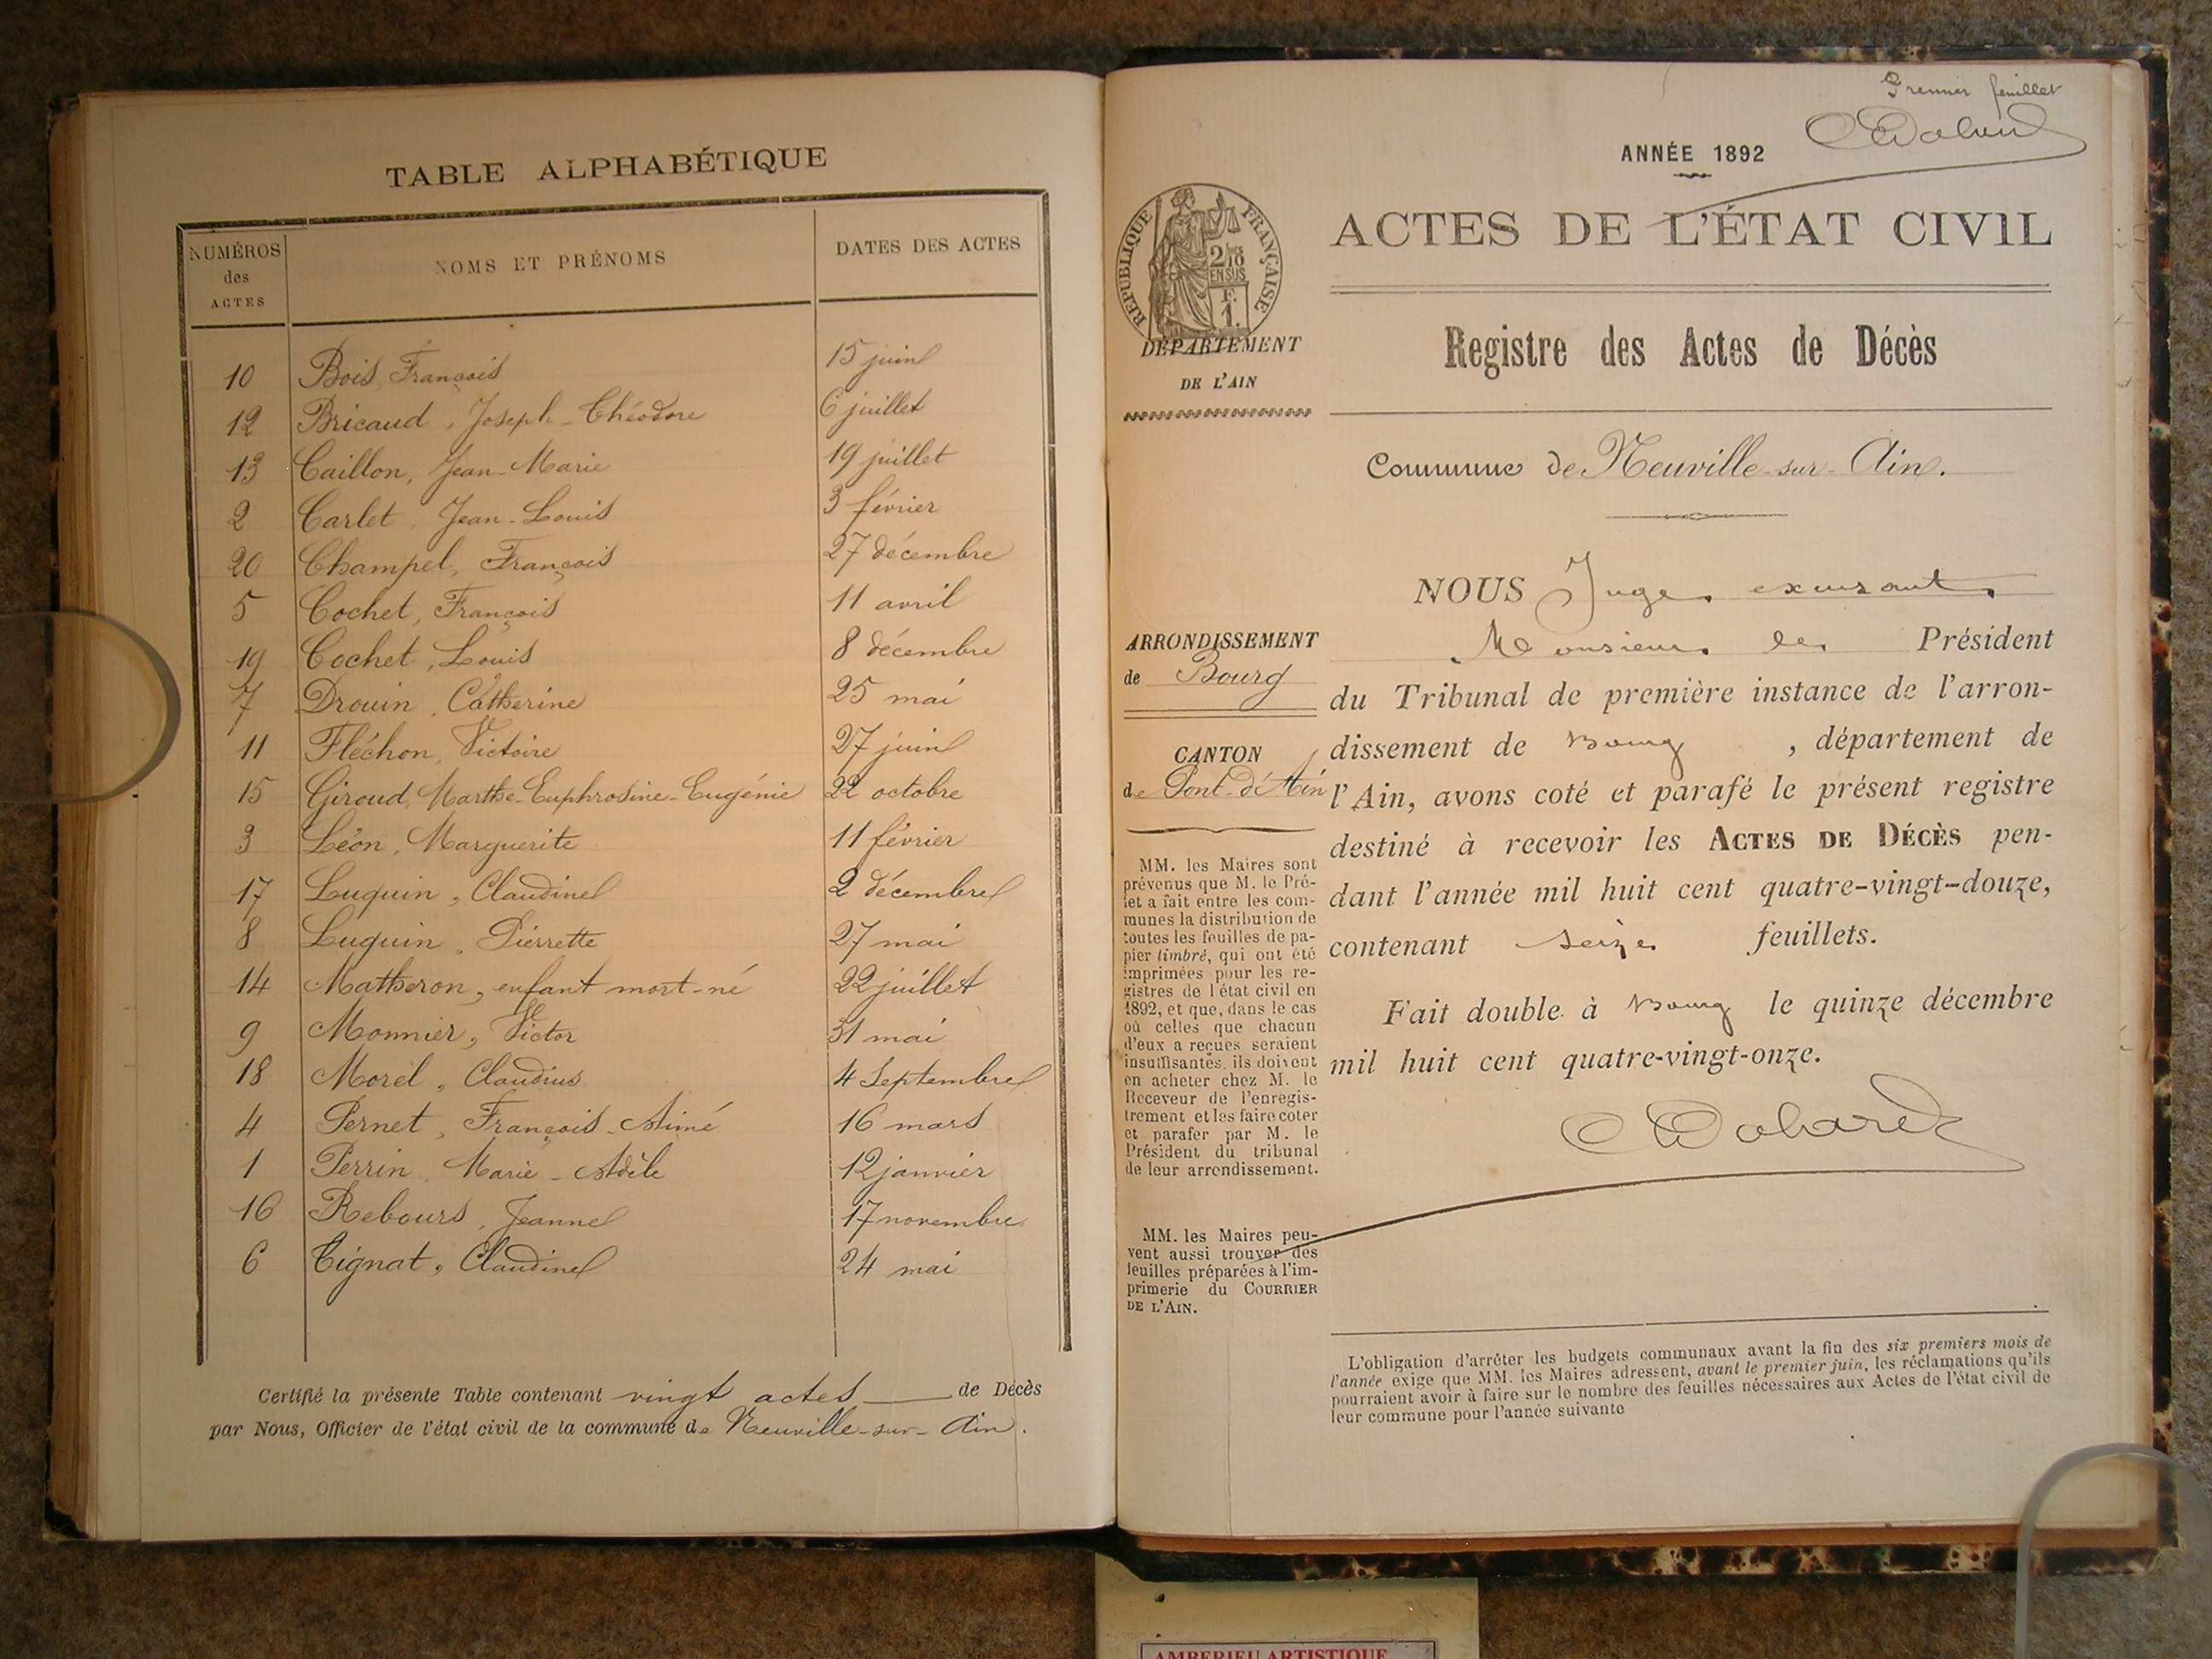 TABLE ALPHABÉTIQUE
NUMÉROS des ACTES
NOMS ET PRÉNOMS
DATES DES ACTES
10 Bois, François 15 juin
12 Bricaud, Joseph-Théodore 6 juillet
13 Caillon, Jean-Marie 19 juillet
2 Carlet, Jean-Louis 3 février
20 Champel, François 27 décembre
5 Cochet, François 11 avril
19 Cochet, Louis 8 décembre
7 Drouin, Catherine 25 mai
11 Fléchon, Victoire 27 juin
15 Giroud, Marthe-Euphrosine-Eugénie 22 octobre
3 Léon, Marguerite 11 février
17 Luguin, Claudine 2 décembre
8 Luguin, Pierrette 27 mai
14 Matheron, enfant mort-né 22 juillet
9 Monnier, Victor 31 mai
18 Morel, Claudius 4 Septembre
4 Pernet, François-Aimé 16 mars
1 Perrin, Marie-Adèle 12 janvier
16 Rebours, Jeanne 17 novembre
6 Tignat, Claudine 24 mai
Certifié la présente Table contenant vingt actes de Décès
par Nous, Officier de l'état civil de la commune de Neuville-sur-Ain.
Premier feuillet
ANNÉE 1892
RÉPUBLIQUE FRANÇAISE
2/10
EN SUS
F.
1.
ACTES DE L'ÉTAT CIVIL
DÉPARTEMENT
DE L'AIN
Registre des Actes de Décès
Commune de Neuville-sur-Ain.
ARRONDISSEMENT
de Bourg
CANTON
de Pont-d'Ain
MM. les Maires sont
prévenus que M. le Pré-
fet a fait entre les com-
munes la distribution de
toutes les feuilles de pa-
pier timbré, qui ont été
imprimées pour les re-
gistres de l'état civil en
1892, et que, dans le cas
où celles que chacun
d'eux a reçues seraient
insuffisantes, ils doivent
en acheter chez M. le
Receveur de l'enregis-
trement et les faire coter
et parafer par M. le
Président du tribunal
de leur arrondissement.
MM. les Maires peu-
vent aussi trouver des
feuilles préparées à l'im-
primerie du COURRIER
DE L'AIN.
NOUS Juge excusant
Monsieur le Président
du Tribunal de première instance de l'arron-
dissement de Bourg, département de
l'Ain, avons coté et parafé le présent registre
destiné à recevoir les ACTES DE DÉCÈS pen-
dant l'année mil huit cent quatre-vingt-douze,
contenant seize feuillets.
Fait double à Bourg le quinze décembre
mil huit cent quatre-vingt-onze.
L'obligation d'arrêter les budgets communaux avant la fin des six premiers mois de
l'année exige que MM. les Maires adressent, avant le premier juin, les réclamations qu'ils
pourraient avoir à faire sur le nombre des feuilles nécessaires aux Actes de l'état civil de
leur commune pour l'année suivante
AMBERIEU ARTISTIQUE